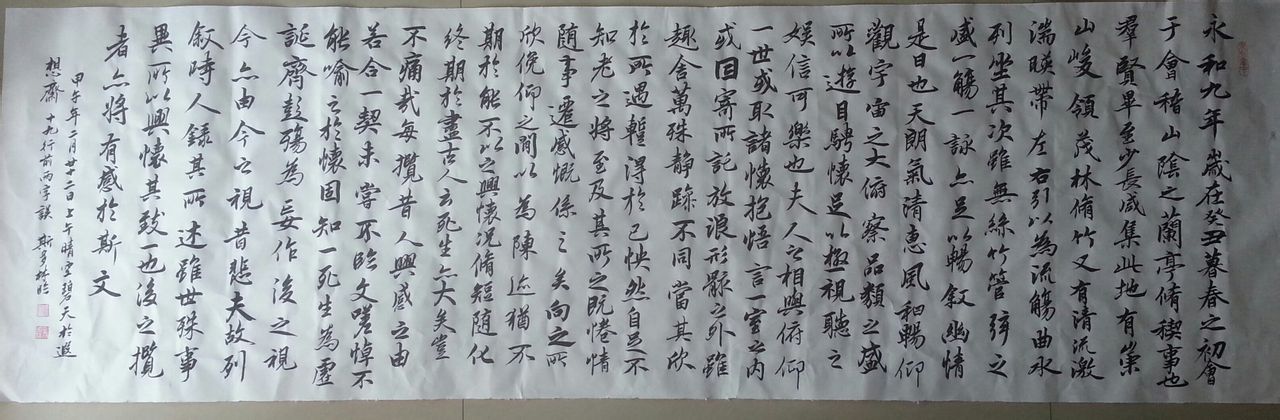 永和九年歲在癸丑暮春之初會
于會稽山陰之蘭亭脩稧事也
羣賢畢至少長咸集此地有崇
山峻領茂林脩竹又有清流激
湍暎帶左右引以為流觴曲水
列坐其次雖無絲竹管弦之
盛一觴一詠亦足以暢敘幽情
是日也天朗氣清惠風和暢仰
觀宇宙之大俯察品類之盛
所以遊目騁懷足以極視聽之
娛信可樂也夫人之相與俯仰
一世或取諸懷抱悟言一室之內
或因寄所託放浪形骸之外雖
趣舍萬殊靜躁不同當其欣
於所遇蹔得於己怏然自足不
知老之將至及其所之既惓情
隨事遷感慨係之矣向之所
欣俛仰之閒以為陳迹猶不
期於能不以之興懷況脩短隨化
終期於盡古人云死生亦大矣豈
不痛哉每攬昔人興感之由
若合一契未嘗不臨文嗟悼不
能喻之於懷固知一死生為虛
誕齊彭殤為妄作後之視
今亦由今之視昔悲夫故列
敘時人錄其所述雖世殊事
異所以興懷其致一也後之攬
者亦將有感於斯文
甲午年二月廿二日上午晴空碧天於遐
想齋 十九行前兩字誤